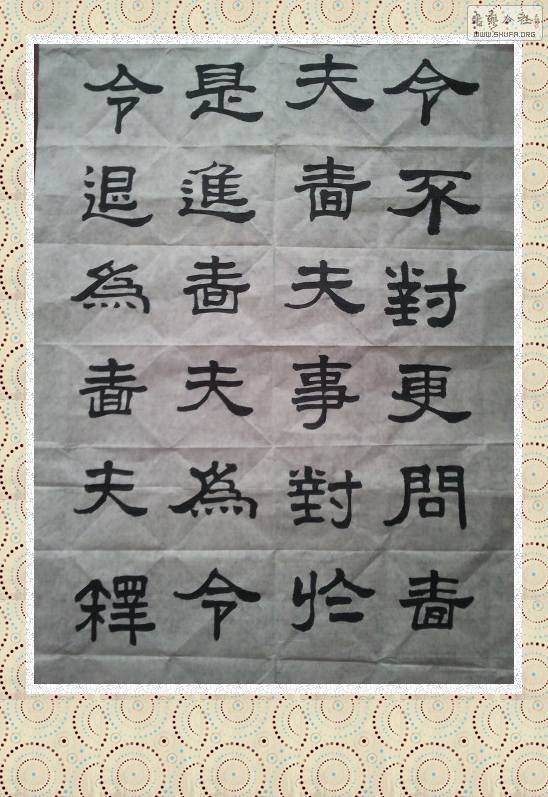 令不對更問嗇
夫嗇夫事對於
是進嗇夫為令
令退為嗇夫釋
WWW.SHUFA.ORG